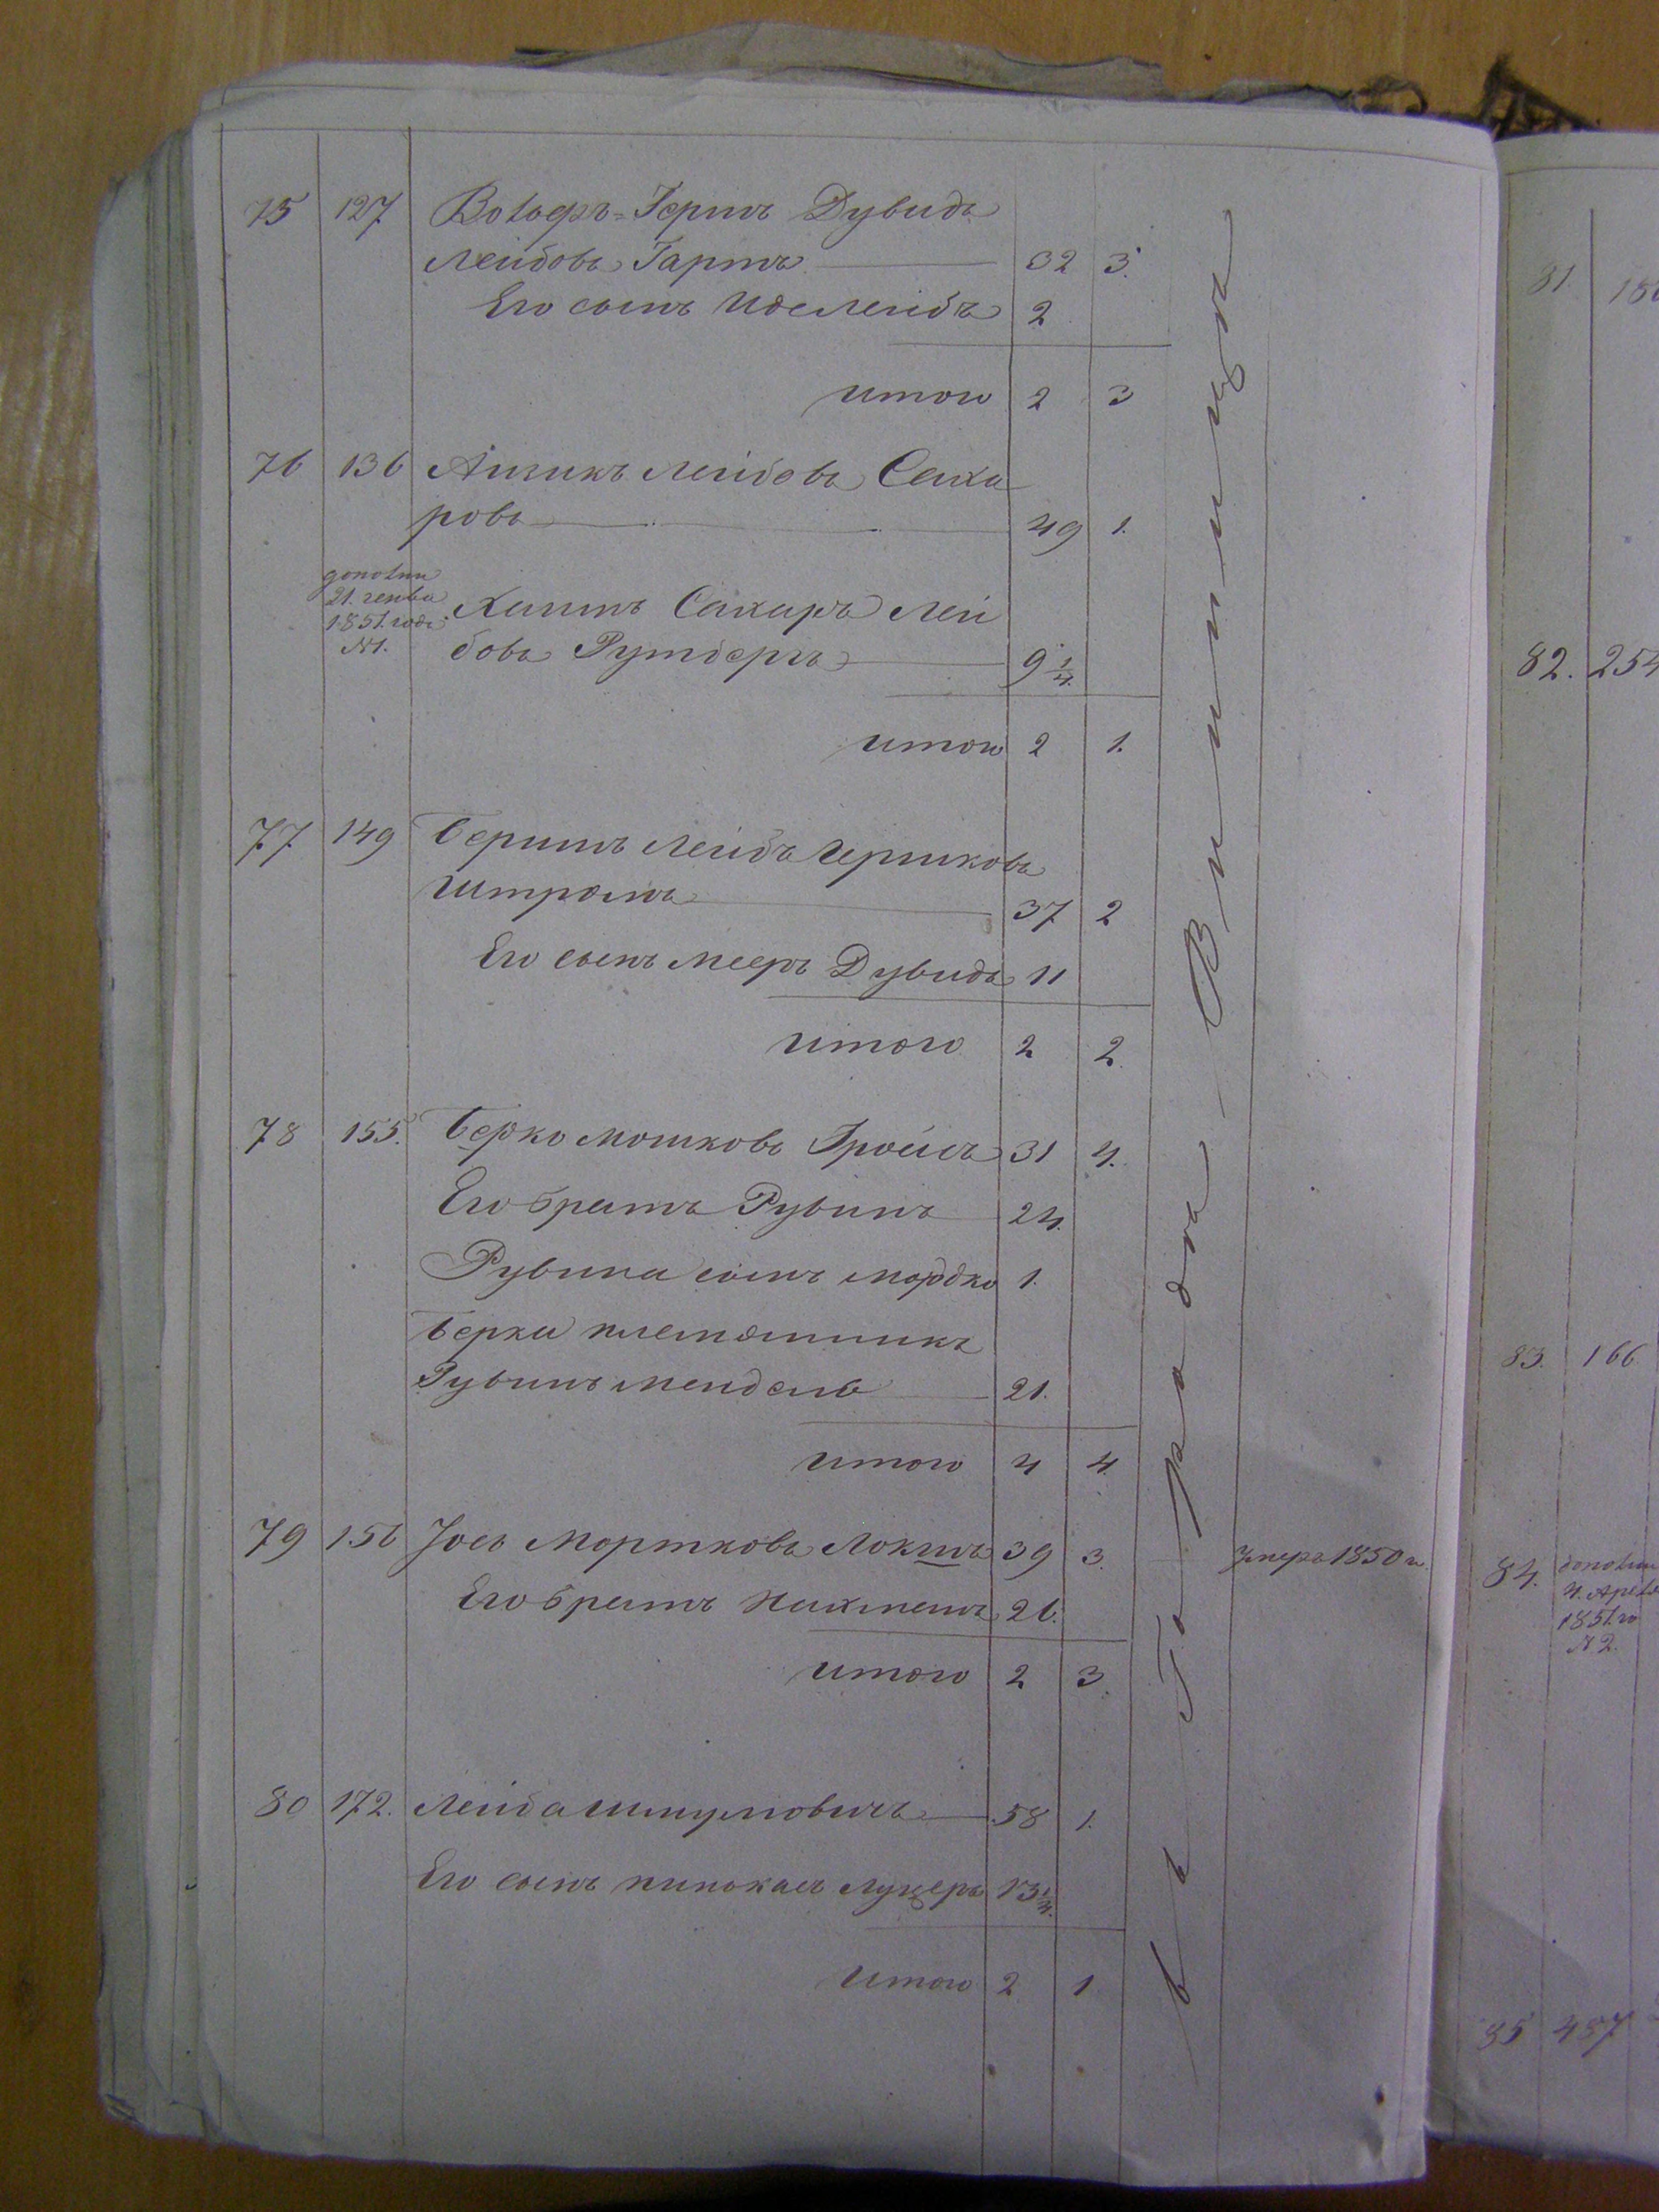 75 127 Волофъ=Герть Дувидъ
Лейбовъ Гартъ 32 3.
Его сынъ Иос Лейбъ 2
итого 2 3
76 136 Айзикъ Лейбовъ Саха
ровъ 49 1.
дополни
21. генва
1851. года
№1.
Хаимъ Сахаръ Лей
бовъ Рутберъ 9 1/4.
итого 2 1.
77 149 Беришъ Лейбъ Гершковъ
Штромъ 37 2
Его сынъ Мееръ Дувидъ 11
итого 2 2.
78 155. Берко Мошковъ Гройсъ 31 4.
Его братъ Рувинъ 24.
Рувина сынъ Мордко 1.
Берки племянникъ
Рувинъ Мендель 21.
итого 4 4.
79 156 Іось Мортковъ Локшъ 39 3. умеръ 1850 г.
Его братъ Нахманъ 26.
итого 2 3
80 172. Лейба Шмулповичъ 58 1.
Его сынъ Пинхасъ Луцеръ 13 1/4.
итого 2 1
въ Городѣ Винницѣ
81
82. 254
83. 166
84. дополни
4. Апрѣ
1851. го
№ 2.
85 487